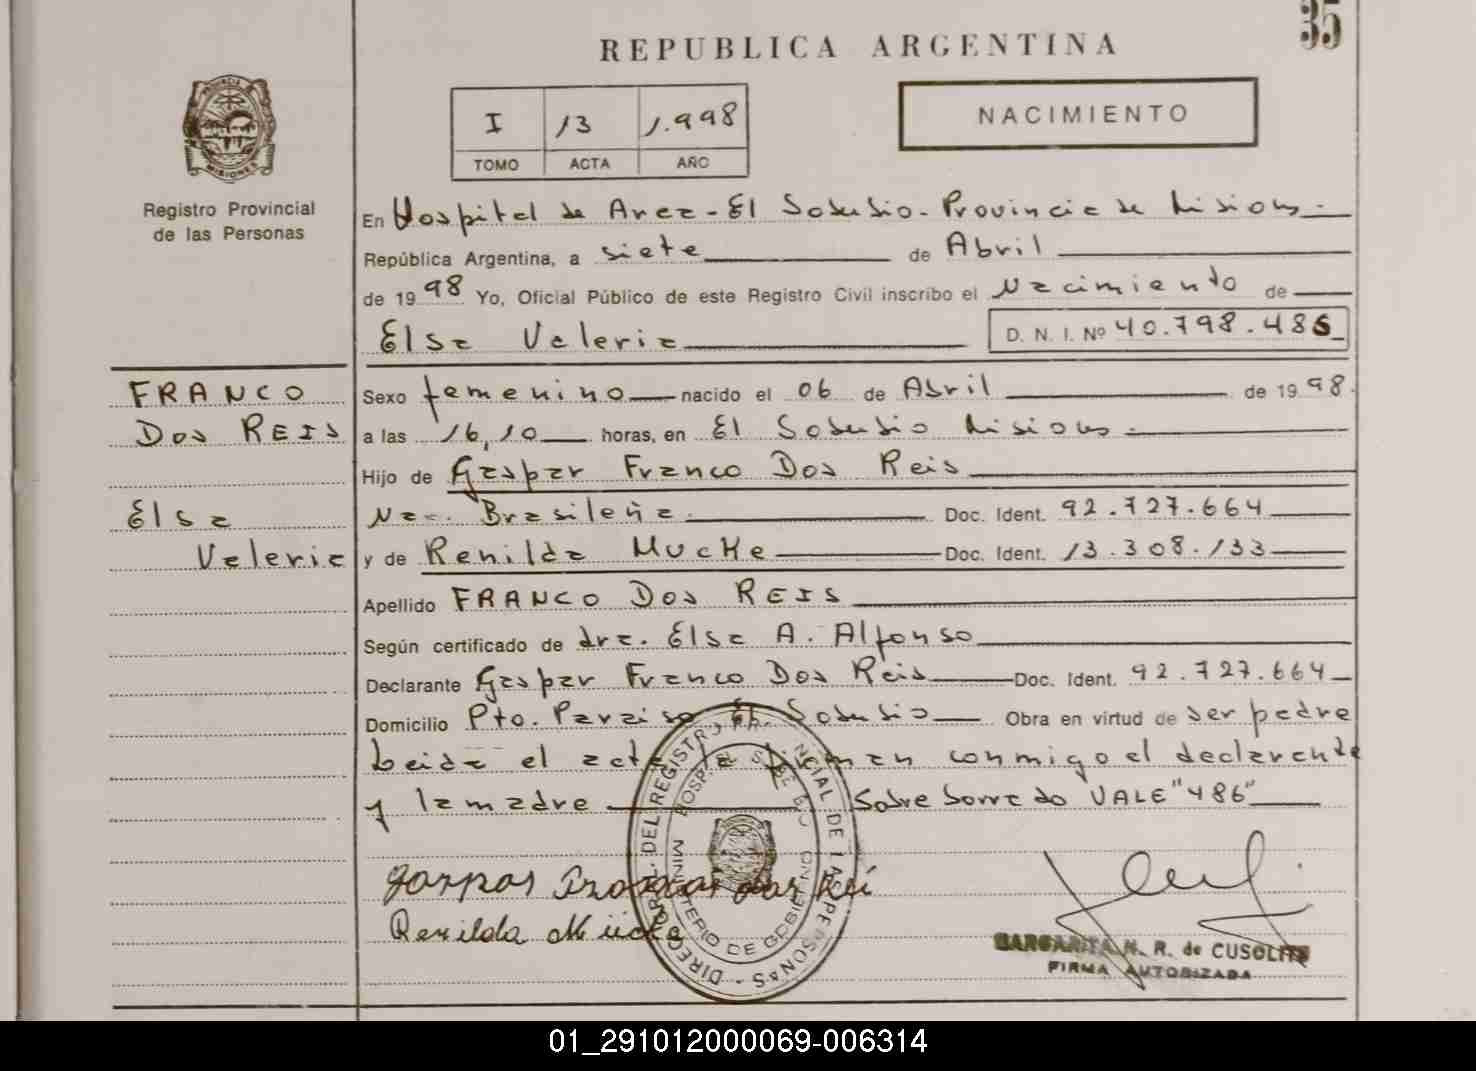 35
REPUBLICA ARGENTINA
NACIMIENTO
I 13 1.998
TOMO ACTA AÑO
PROVINCIA DE MISIONES
Registro Provincial
de las Personas
En Hospital de Area - El Soberbio - Provincia de Misiones -
República Argentina, a siete de Abril
de 1998 Yo, Oficial Público de este Registro Civil inscribo el Nacimiento de
Elsa Valeria D. N. I. Nº 40.798.486
FRANCO
DOS REIS
Elsa
Valeria
Sexo femenino nacido el 06 de Abril de 1998.
a las 16,10 horas, en El Soberbio Misiones.
Hijo de Gaspar Franco Dos Reis
Nac. Brasileña. Doc. Ident. 92.727.664
y de Renilda MucKe Doc. Ident. 13.308.133
Apellido FRANCO DOS REIS
Según certificado de dra. Elsa A. Alfonso
Declarante Gaspar Franco Dos Reis Doc. Ident. 92.727.664
Domicilio Pto. Paraiso El Soberbio Obra en virtud de ser padre
Leida el acta la firman conmigo el declarante
y la madre Sobre borrado VALE "486"
Renilda Mücke
MINISTERIO DE GOBIERNO
MARGARITA N. R. de CUSOLITO
FIRMA AUTORIZADA
01_291012000069-006314